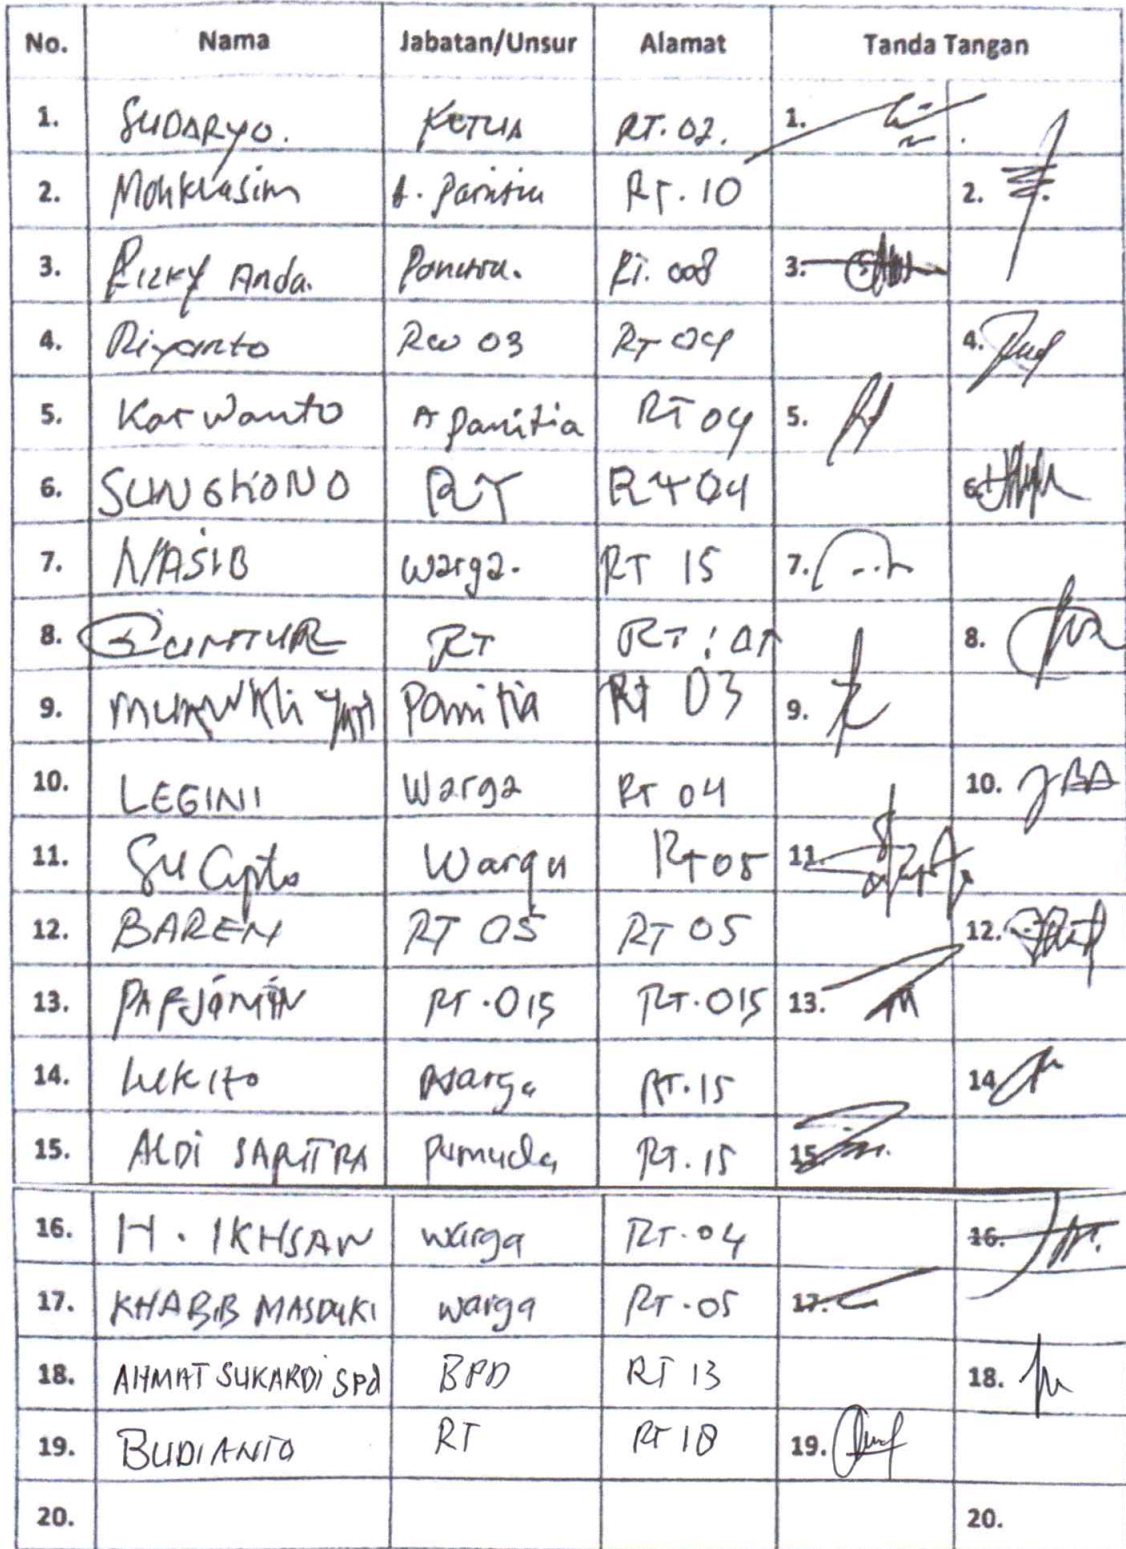 No. Nama Jabatan/Unsur Alamat Tanda Tangan
1. SUDARYO. KETUA RT. 02. 1.
2. Moh Kasim A. Panitia RT. 10 2.
3. Rizky Anda. Panitia. RT. 008 3.
4. Riyanto RW 03 RT 04 4.
5. Karwanto A panitia RT 04 5.
6. SUNGKONO RT RT 04 6.
7. NASIB warga. RT 15 7.
8. GUNTUR RT RT : 8.
9. Panitia Rt 03 9.
10. LEGINI Warga RT 04 10.
11. SuCipto Warga RT 05 11.
12. BAREN RT 05 RT 05 12.
13. PARJAMIN RT. 015 RT. 015 13.
14. Lukito Warga RT. 15 14.
15. ALDI SAPUTRA Pemuda RT. 15 15.
16. H. IKHSAN warga RT. 04 16.
17. KHABIB MASDUKI warga RT. 05 17.
18. AHMAT SUKARDI SPd BPD RT 13 18.
19. BUDIANTO RT RT 18 19.
20. 20.